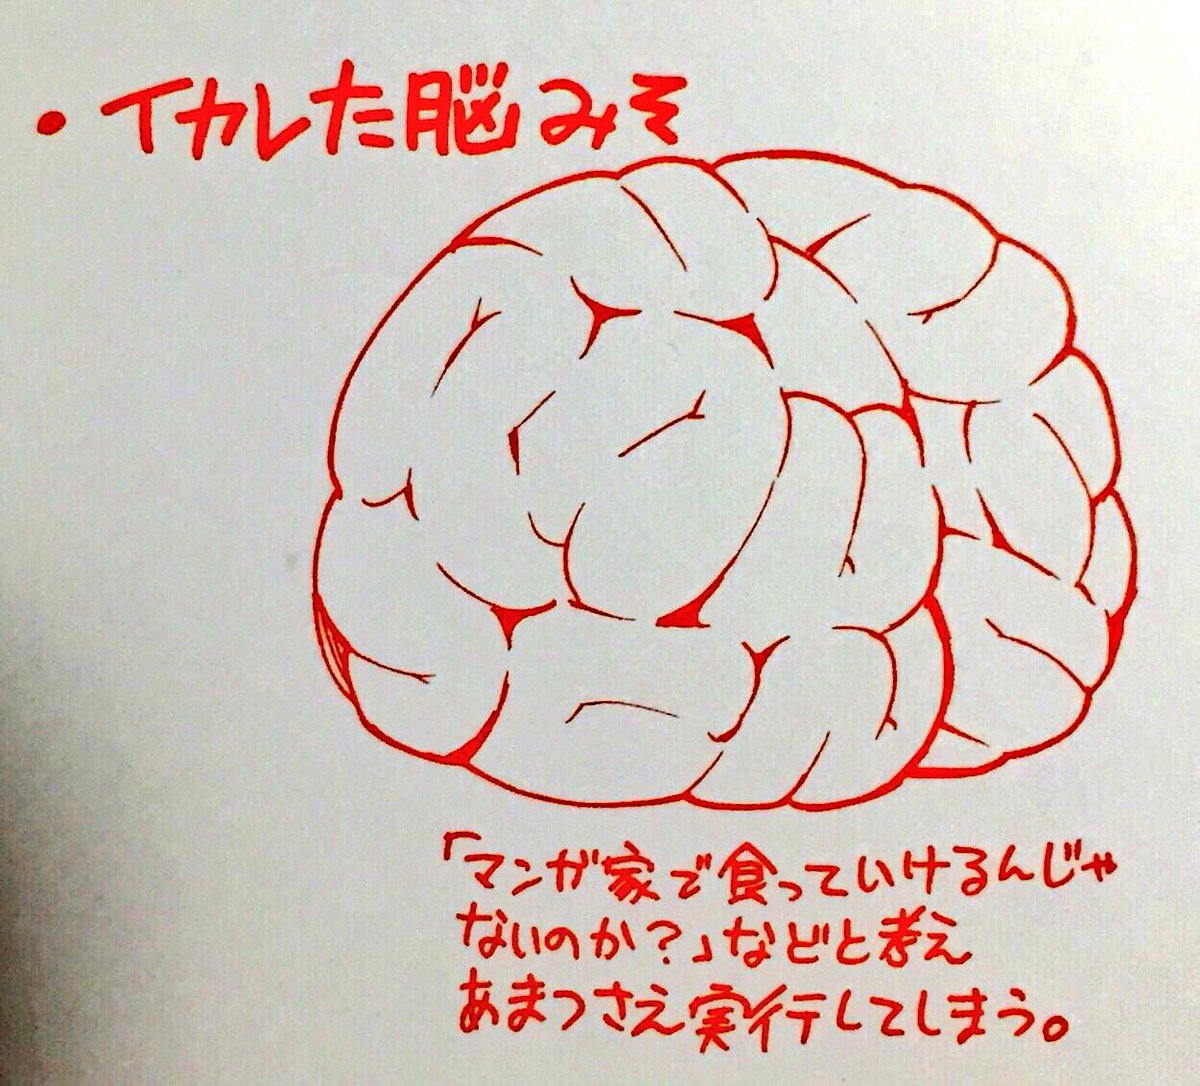 ・イカレた脳みそ
「マンガ家で食っていけるんじゃ
ないのか?」などと考え
あまつさえ実行してしまう。